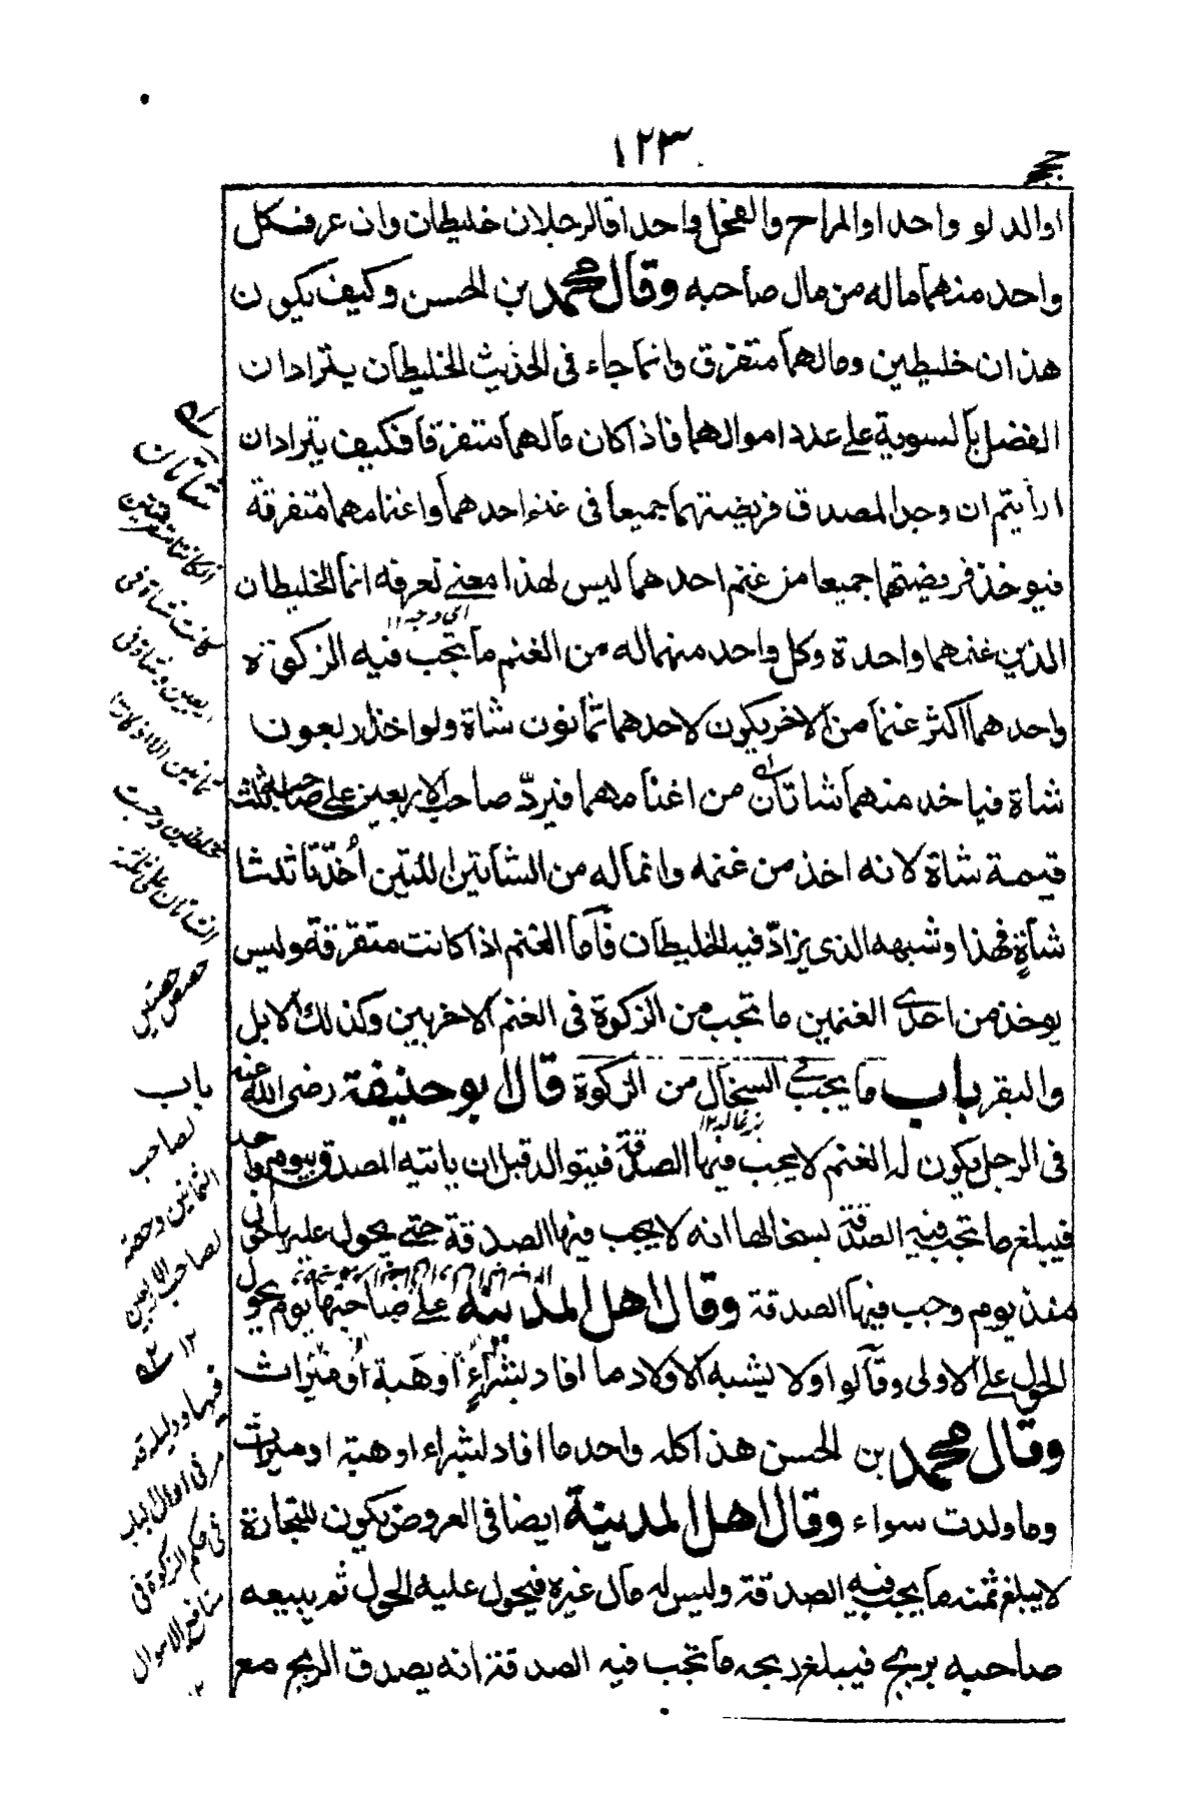 ١٢٣
حجج
اوالدلو واحدا والمراح والفحل واحدا قال الرجلان خليطان وان عرف كل
واحد منهما ماله من مال صاحبه وقال محمد بن الحسن وكيف يكون
هذان خليطين ومالهما متفرق وانما جاء فى الحديث الخليطان يترادان
الفضل بالسوية على عدد اموالهما فاذا كان مالهما متفرقا فكيف يترادان
ارأيتم ان وجد المصدق فريضتهما جميعا فى غنم احدهما واغنامهما متفرقة
فيوخذ فريضتهما جميعا من غنم احدهما ليس لهذا معنى نعرفه انما الخليطان
اى وجه ١٢
الذين غنمهما واحدة وكل واحد منهما له من الغنم ما تجب فيه الزكوة
واحدهما اكثر غنما من الاخر يكون لاحدهما ثمانون شاة ولواخذ اربعون
شاة فياخد منهما شاتان من اغنامهما فيردّ صاحب الاربعين على صاحب ثلث
قيمة شاة لانه اخذ من غنمه وانما له من الشاتين اللتين اُخذتا ثلثا
شاةٍ فهذا وشبهه الذى يزادّ فيه الخليطان فأما الغنم اذا كانت متفرقة وليس
يوخذ من احدى الغنمين ما تجب من الزكوة فى الغنم الاخريين وكذلك الابل
والبقر باب ما يجب فى السخال من الزكوة قال ابو حنيفة رضى الله عنه
بزغاله ١٢
فى الرجل يكون له الغنم لا يجب فيها الصدقة فيتوالد قبل ان ياتيه المصدق بيوم واحد
فيبلغ ما تجب فيه الصدقة بسخالها انه لا يجب فيها الصدقة حتى يحول عليها
منذ يوم وجب فيها الصدقة وقال اهل المدينة على صاحبها يوم يحول
الحول على الاولى وقالوا ولا يشبه الاولاد ما افاد بشراءٍ او هبة او ميراث
وقال محمد بن الحسن هذا كله واحد ما افاد لشراء او هبة او ميراث
وما ولدت سواء وقال اهل المدينة ايضا فى العروض يكون للتجارة
لا يبلغ ثمنه ما يجب فيه الصدقة وليس له مال غيره فيحول عليه الحول ثم يبيعه
صاحبه بربح فيبلغ ربحه ما تجب فيه الصدقة انه يصدق الربح مع
شاتان
كانت شاة فى
اربعين وشاة فى
الشاتان على ثلثة
حصص حصتين
باب
لصاحب
الثمانين وحصة
لصاحب الاربعين
١٢
فى حكم الزكوة فى
منافع الاموال
١٢